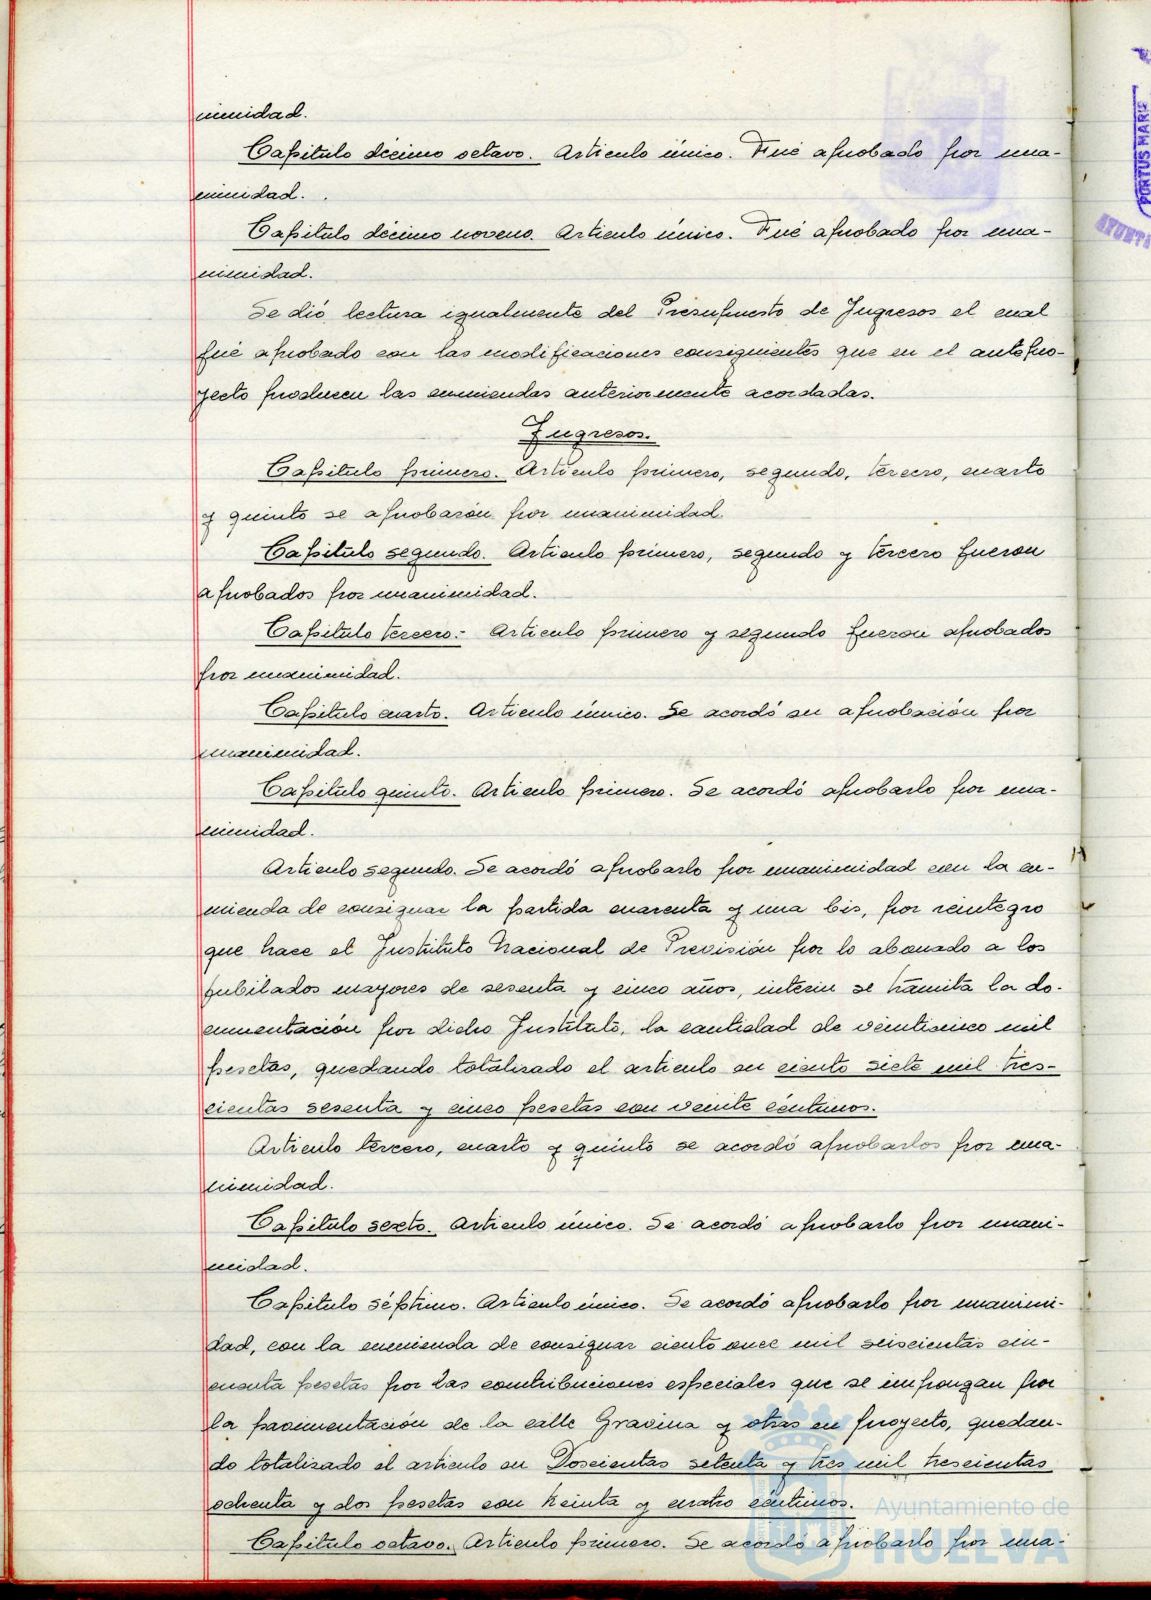 nimidad.
Capítulo décimo octavo. Artículo único. Fué aprobado por una-
nimidad.
Capítulo décimo noveno. Artículo único. Fué aprobado por una-
nimidad.
Se dió lectura igualmente del Presupuesto de Ingresos el cual
fué aprobado con las modificaciones consiguientes que en el antepro-
yecto producen las enmiendas anteriormente acordadas.
Ingresos.
Capítulo primero. Artículo primero, segundo, tercero, cuarto
y quinto se aprobarón por unanimidad.
Capítulo segundo. Artículo primero, segundo y tercero fueron
aprobados por unanimidad.
Capítulo tercero:- Artículo primero y segundo fueron aprobados
por unanimidad.
Capítulo cuarto. Artículo único. Se acordó su aprobación por
unanimidad.
Capítulo quinto. Artículo primero. Se acordó aprobarlo por una-
nimidad.
Artículo segundo. Se acordó aprobarlo por unanimidad con la en-
mienda de consignar la partida cuarenta y una bis, por reintegro
que hace el Instituto Nacional de Previsión por lo abonado a los
jubilados mayores de sesenta y cinco años, interin se tramita la do-
cumentación por dicho Instituto, la cantidad de veinticinco mil
pesetas, quedando totalizado el artículo en ciento siete mil tres-
cientas sesenta y cinco pesetas con veinte céntimos.
Artículo tercero, cuarto y quinto se acordó aprobarlos por una-
nimidad.
Capítulo sexto. Artículo único. Se acordó aprobarlo por unani-
midad.
Capítulo séptimo. Artículo único. Se acordó aprobarlo por unanimi-
dad, con la enmienda de consignar ciento once mil seiscientas cin-
cuenta pesetas por las contribuciones especiales que se impongan por
la pavimentación de la calle Gravina y otras en proyecto, quedan-
do totalizado el artículo en Doscientas setenta y tres mil trescientas
ochenta y dos pesetas con treinta y cuatro céntimos.
Capítulo octavo. Artículo primero. Se acordó aprobarlo por una-
PORTUS MARIS
Ayuntamiento de
HUELVA